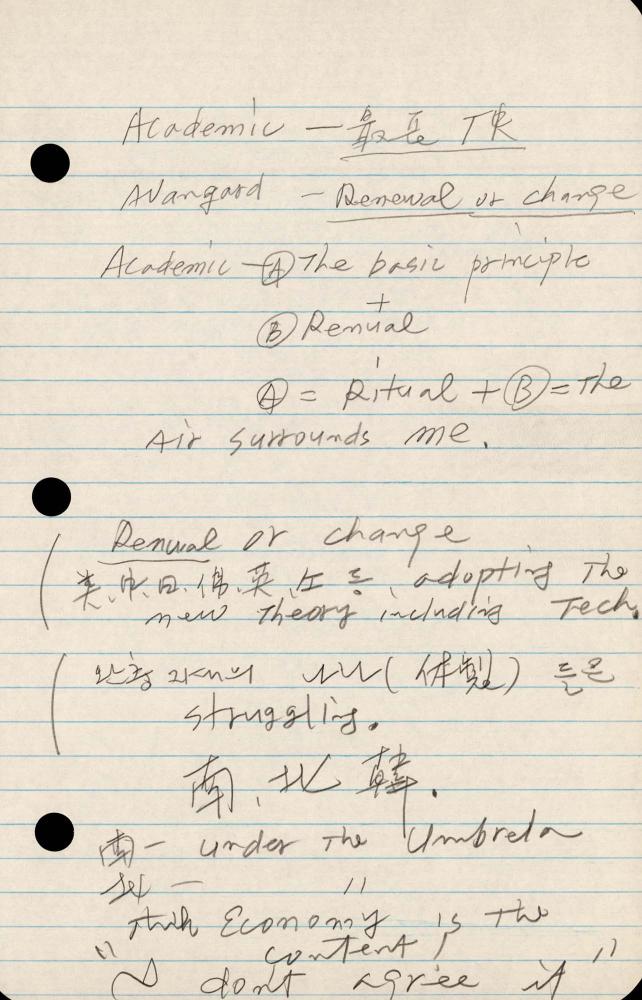 Academic — 最長 TR
Avangard — Renewal or change
Academic — Ⓐ The basic principle
+
Ⓑ Renual
Ⓐ = Ritual + Ⓑ = The
Air surrounds me.
Renual or change
美.中.日.佛.英. 등 adopting The
new Theory including Tech.
(体製) 들은
struggling.
南, 北 韓.
南 — under The Umbrela
北 — 〃
think Economy is The
content,
" I dont agree it "